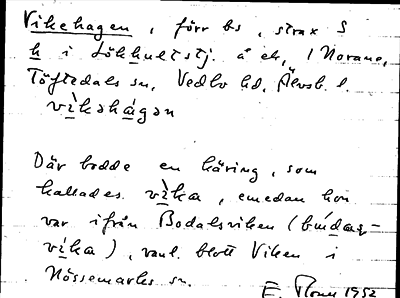 Vikehagen, förr bs, strax S
h i Lökhultstj. å ek, i Norane,
Töftedals sn, Vedbo hd, Älvsb. l.
vìkəhágən
Där bodde en käring, som
kallades vìka, emedan hon
var ifrån Bodalsviken (
vìka), vanl. blott Viken i
Nössemarks sn.
E. 1952